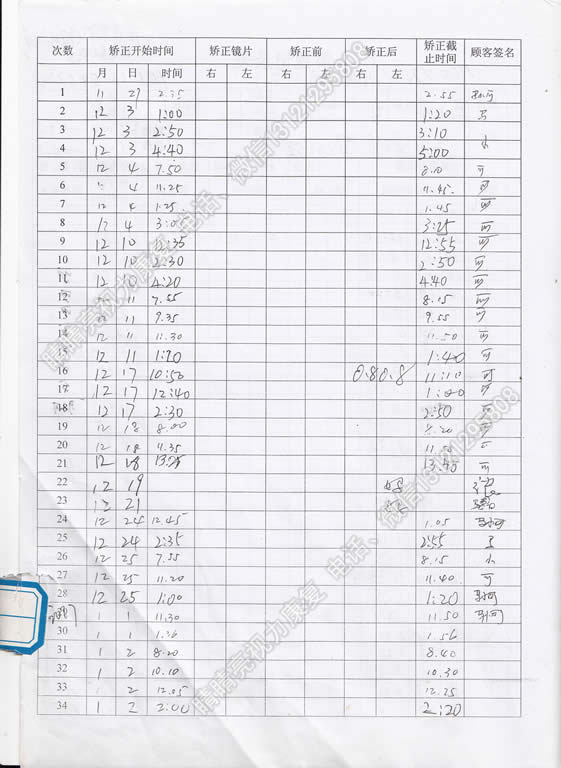 次数 矫正开始时间 矫正镜片 矫正前 矫正后 矫正截止时间 顾客签名
月 日 时间 右 左 右 左 右 左
1 11 27 2:35 2.55
2 12 3 1:00 1:20
3 12 3 2:50 3:10
4 12 3 4:40 5:00
5 12 4 7.50 8.10 可
6 4 11.25 11.45 可
7 12 4 1.25 1.45 可
8 12 4 3:05 3:25 可
9 12 10 12:35 12:55 可
10 12 10 2:30 2:50 可
11 12 10 4:20 4:40 可
12 12 11 7.55 8.15 可
13 12 11 9.35 9.55 可
14 12 11 11.30 11.50 可
15 12 11 1:20 1:40 可
16 12 17 10:50 0.8 0.8 11:10 可
17 12 17 12:40 1:00 可
18 12 17 2:30 2:50 可
19 12 18 8:00 8.20 可
20 12 18 11.35
21 12 18 13:25 13:45 可
22 12 19
23 12 21
24 12 24 12.45 1.05
25 12 24 2:35 2:55
26 12 25 7.55 8.15
27 12 25 11.20 11.40 可
28 12 25 1:00 1:20
1 1 11.30 11.50
30 1 1 1.36 1.56
31 1 2 8.20 8.40
32 1 2 10.10 10.30
33 2 12.05 12.25
34 1 2 2:00 2:20
睛睛亮视力康复 电话、微信13121295808
睛睛亮视力康复 电话、微信13121295808